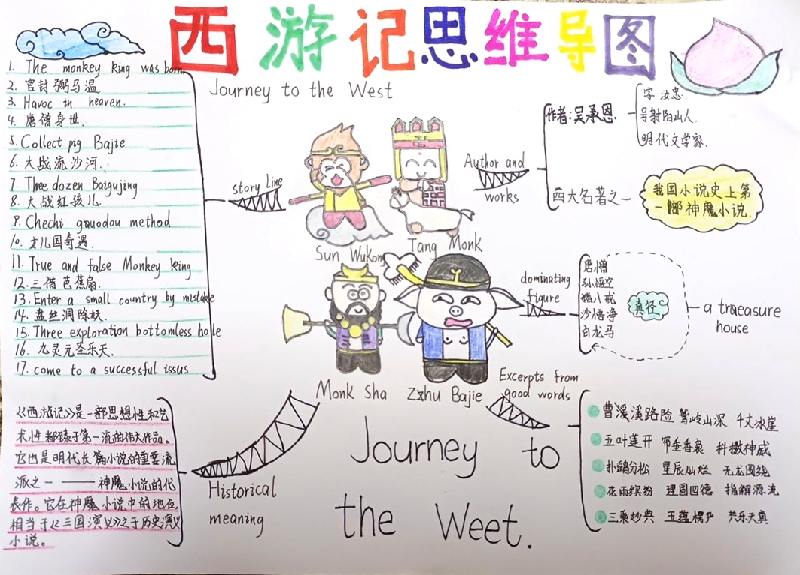 西游记思维导图
Journey to the West
1. The monkey king was born
2. 官封弼马温
3. Havoc in heaven.
4. 唐僧身世.
5. Collect pig Bajie
6. 大战流沙河.
7. Three dozen Baigujing
8. 大战红孩儿
9. Chechi guoudou method
10. 女儿国奇遇.
11. True and false Monkey king
12. 三借芭蕉扇.
13. Enter a small country by mistake
14. 盘丝洞降妖.
15. Three exploration bottomless hole
16. 九灵元圣乐天.
17. come to a successful issus
story line
Sun Wukong
Tang Monk
Monk Sha
Zzhu Bajie
Author and
works
作者:吴承恩.
字汝忠
号射阳山人.
明代文学家.
四大名著之一
我国小说史上第
一部神魔小说.
dominating
figure
唐僧
孙悟空
猪八戒
沙悟净
白龙马
真经
a traceasure
house
Excerpts from
good words
曹溪溪路险 鹫岭山深 千丈冰崖
五叶莲开
星辰灿烂
花雨缤纷
三乘妙典
Historical
meaning
《西游记》是一部思想性和艺
术性都臻于第一流的伟大作品。
它也是明代长篇小说的重要流
派之一 ——— 神魔小说的代
表作。它在神魔小说中的地点,
相当于《三国演义》之于历史演义
小说。
Journey to
the Weet.